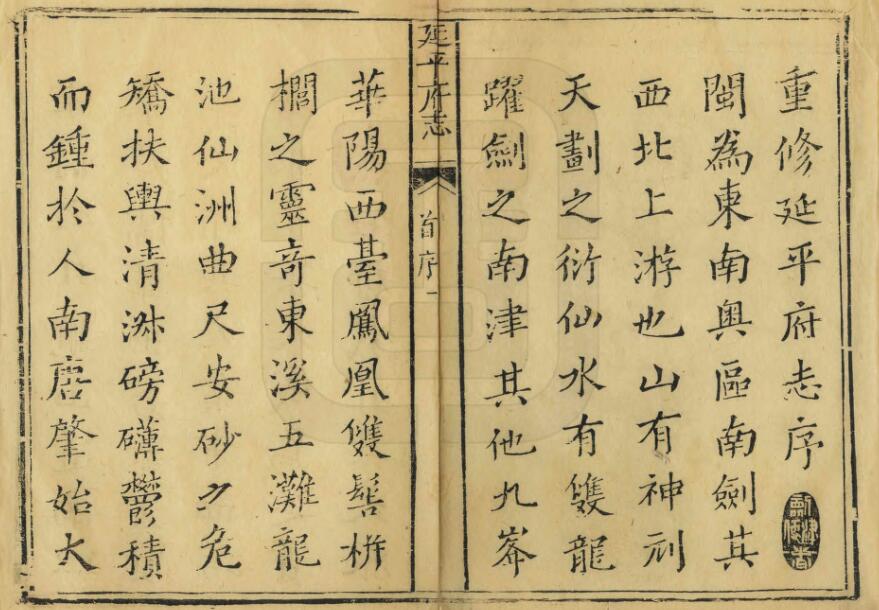 重修延平府志序
閩為東南奧區南劍其
西北上游也山有神刓
天劃之衍仙水有雙龍
躍劍之南津其他九峯
延平府志
首序
一
華陽西臺鳳凰雙髻栟
櫚之靈竒東溪五灘龍
池仙洲曲尺安砂之危
矯扶輿清淑磅礴鬱積
而鍾於人南唐肇始大